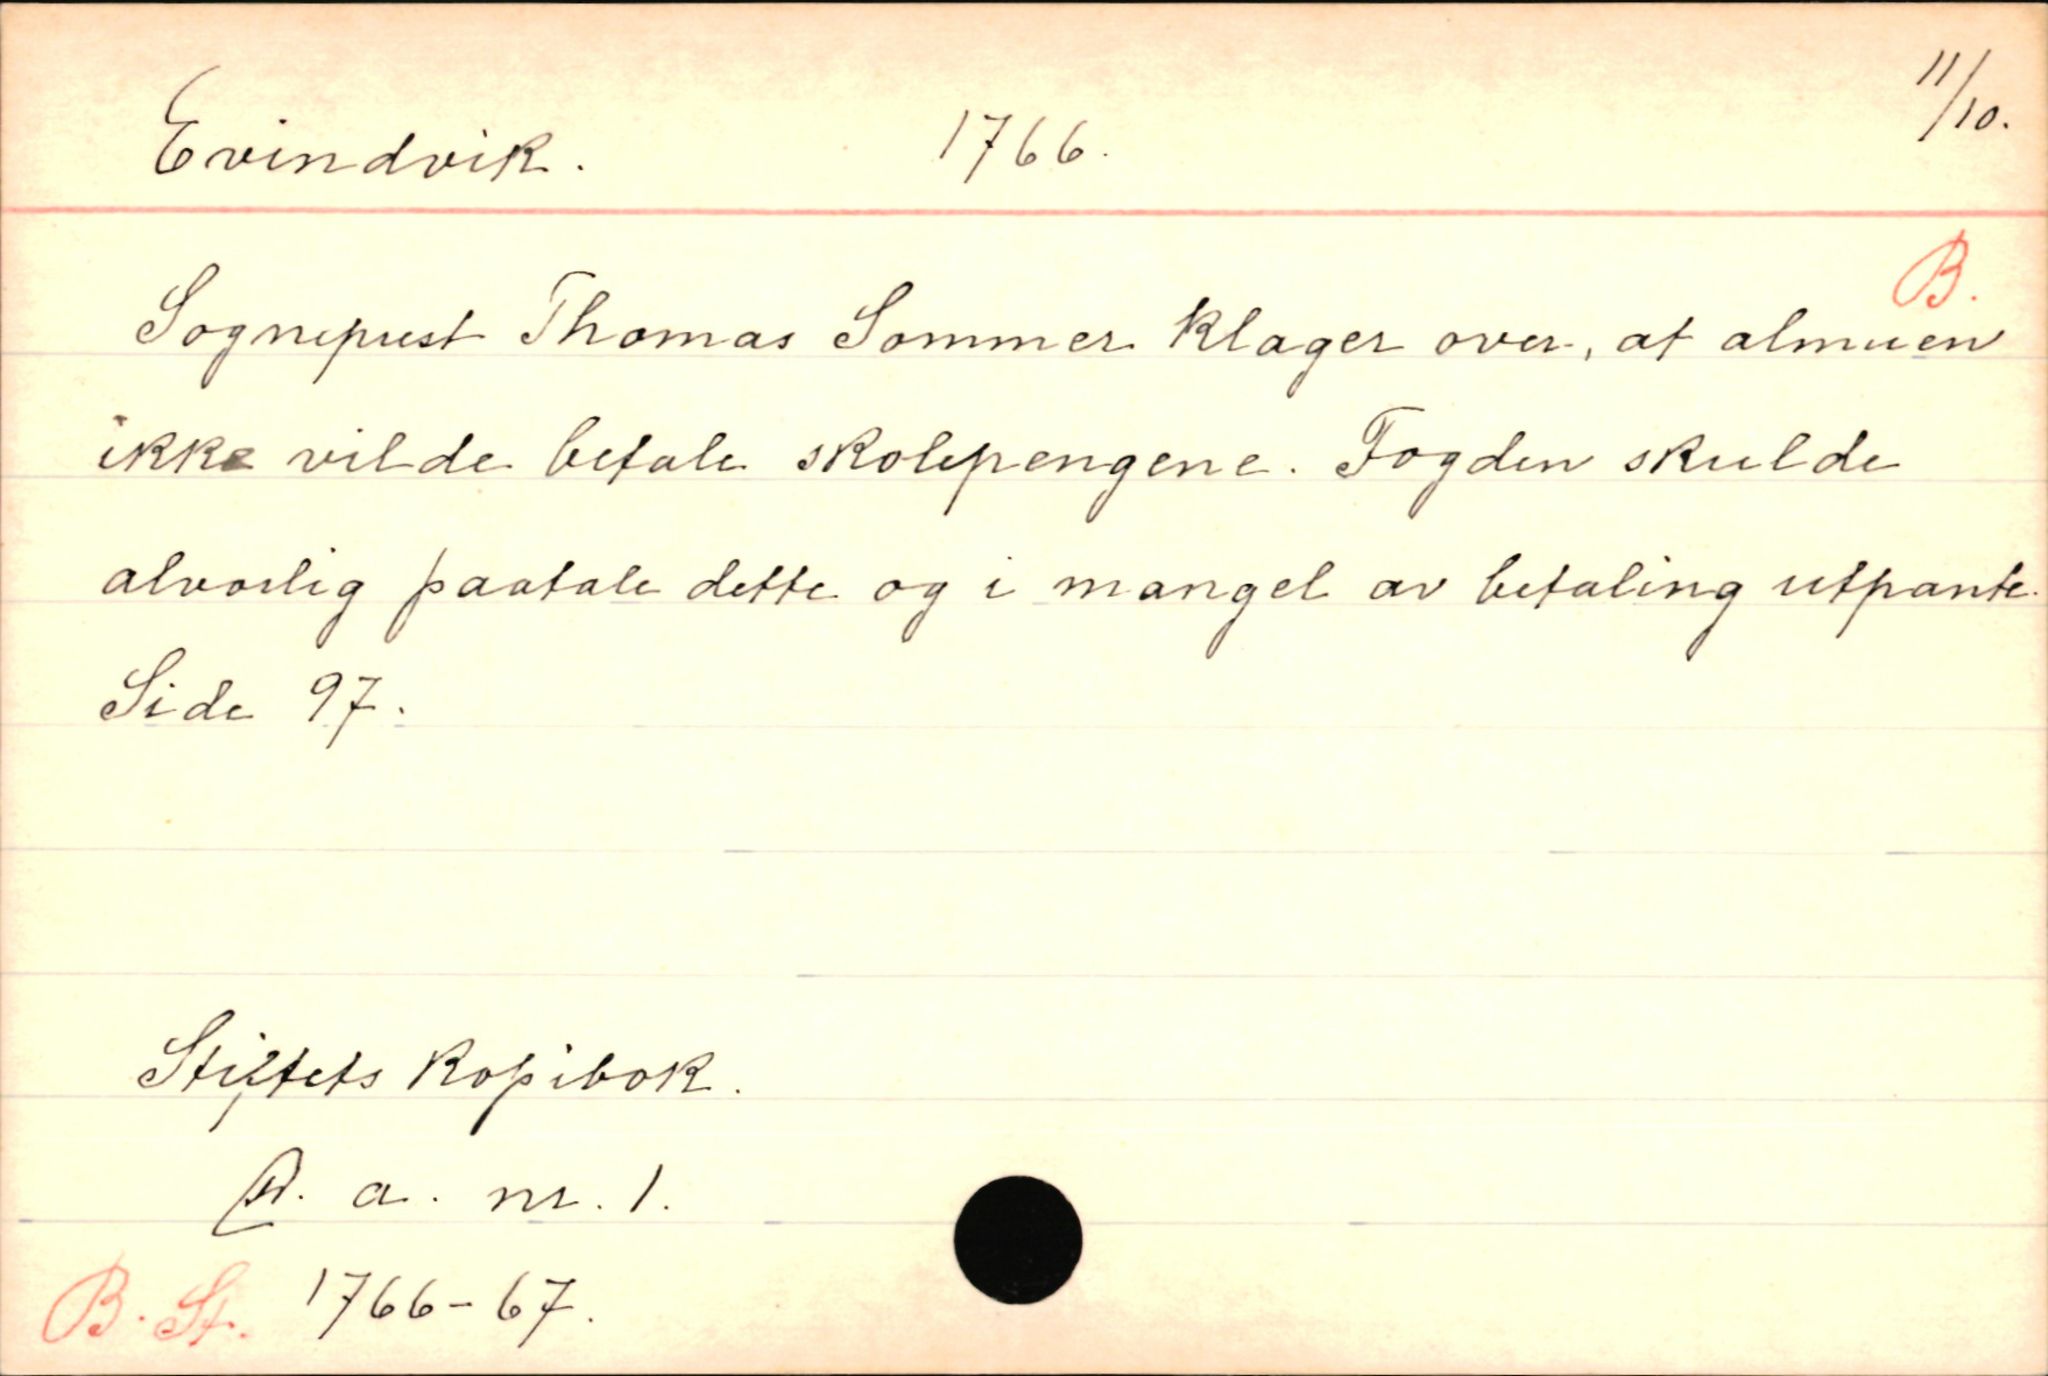 Evindvik. 1766. 11/10.
B.
Sogneprest Thomas Sommer klager over, at almuen
ikke vilde betale skolepengene. Fogden skulde
alvorlig paatale dette og i mangel av betaling utpante.
Side 97.
Stiftets kopibok.
a. nr. 1.
B. St. 1766-67.